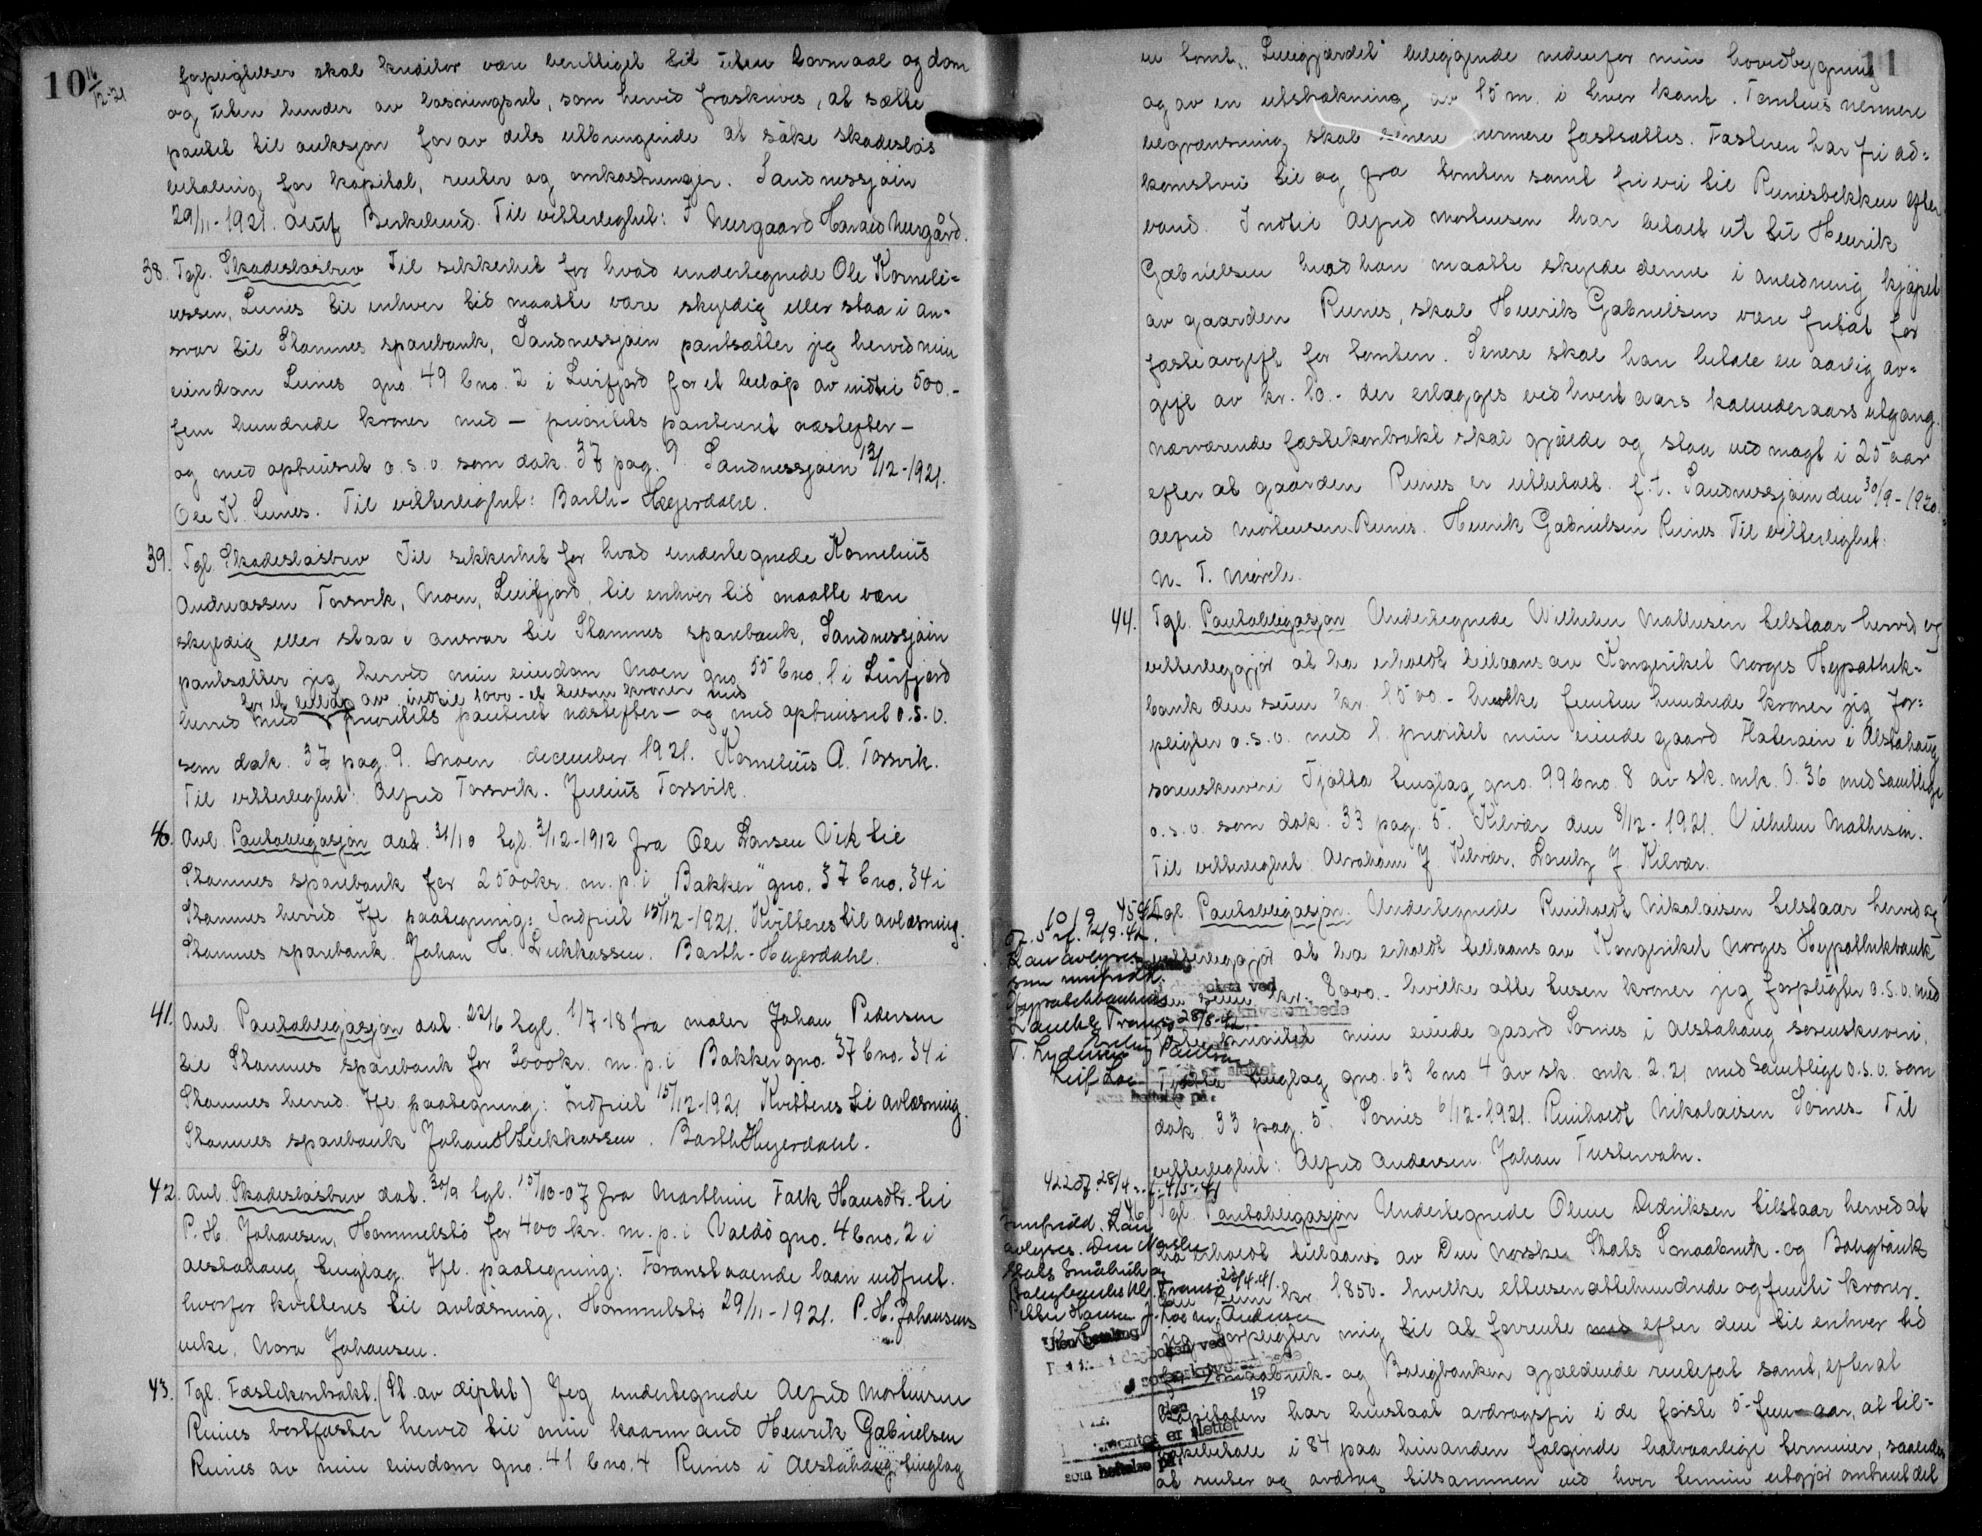 10 16/12-21
forpligtelser skal kreditor være berettiget til uten lovmaal og dom
og uten hinder av løsningsret, som herved fraskrives, at sætte
pantet til auksjon for av dets utbringende at søke skadesløs
betaling for kapital, renter og omkostninger. Sandnessjøen
29/11-1921. Oluf Berkelund. Til vitterlighet: J Nergaard Harald Nergård.
38. Tgl. Skadesløsbrev Til sikkerhet for hvad undertegnede Ole Korneli-
ussen, Lines til enhver tid maatte være skyldig eller staa i an-
svar til Stamnes sparebank, Sandnessjøen pantsætter jeg herved min
eiendom Lines gno. 49 bno. 2 i Leirfjord for et beløp av indtil 500.-
fem hundrede kroner med — prioritets panteret næstefter —
og med opteiesret o.s.v. som dok. 37 pag. 9. Sandnessjøen 13/12-1921.
Ole K. Lines. Til vitterlighet: Barth-Heyerdahl.
39. Tgl. Skadesløsbrev Til sikkerhet for hvad undertegnede Kornelius
Andreassen Torsvik, Moen, Leirfjord, til enhver tid maatte være
skyldig eller staa i ansvar til Stamnes sparebank, Sandnessjøen
pantsætter jeg herved min eiendom Moen gno. 55 bno. 1 i Leirfjord
for et beløp av indtil 1000.- et tusen kroner med
herved med prioritets panteret næstefter — og med opteiesret o.s.v.
som dok. 37 pag. 9. Moen december 1921. Kornelius A. Torsvik.
Til vitterlighet: Alfred Torsvik. Julius Torsvik.
40. Avl. Pantobligasjon dat. 31/10 tgl. 3/12-1912 fra Ole Larsen Vik til
Stamnes sparebank for 2500 kr. m.p. i "Bakker" gno. 37 bno. 34 i
Stamnes herred. Ifl. paategning: Indfriet 15/12-1921. Kvitteres til avlæsning.
Stamnes sparebank. Johan H. Lukkassen. Barth-Heyerdahl.
41. Avl. Pantobligasjon dat. 22/6 tgl. 1/7-18 fra maler Johan Pedersen
til Stamnes sparebank for 3000 kr. m.p. i Bakker gno. 37 bno. 34 i
Stamnes herred. Ifl. paategning: Indfriet 15/12-1921 Kvitteres til avlæsning.
Stamnes sparebank Johan H Lukkassen. Barth Heyerdahl.
42. Avl. Skadesløsbrev dat. 30/9 tgl. 15/10-07 fra Marthine Falk Hansdtr. til
P. H. Johansen, Hammelstø for 400 kr. m.p. i Valdø gno. 4 bno. 2 i
Alstahaug tinglag. Ifl. paategning: Foranstaaende laan indfriet.
hvorfor kvitteres til avlæsning. Hammelstø 29/11-1921. P. H. Johansens
enke. Nora Johansen.
43. Tgl. Fæstekontrakt. (St. av diplet) Jeg undertegnede Alfred Mortensen
Reines bortfæster herved til min kaarmand Henrik Gabrielsen
Reines av min eiendom gno. 41 bno. 4 Reines i Alstahaug tinglag
11
en tomt "Leiegjærdet" beliggende nedenfor min hovedbygning
og av en utstrækning av 15 m. i hver kant. Tomtens nermere
begrænsning skal senere nermere fastsættes. Fæsteren har fri ad-
komstvei til og fra tomten samt fri vei til Reinesbekken efter
vand. Indtil Alfred Mortensen har betalt ut til Henrik
Gabrielsen hvad han maatte skylde denne i anledning kjøpet
av gaarden Reines, skal Henrik Gabrielsen være fritat for
fæsteavgift for tomten. Senere skal han betale en aarlig av-
gift av kr. 10.- der erlægges ved hvert aars kalenderaars utgang.
Nærværende fæstekontrakt skal gjælde og staa ved magt i 25 aar
efter at gaarden Reines er utbetalt. f.t. Sandnessjøen den 30/9-1920.
Alfred Mortensen Reines. Henrik Gabrielsen Reines. Til vitterlighet:
N. T. Mørch.
44. Tgl. Pantobligasjon Undertegnede Vilhelm Mathisen tilstaar herved og
vitterliggjør at ha erholdt tillaans av Kongeriket Norges Hypothek-
bank den sum kr. 1500.- hvilke femten hundrede kroner jeg for-
pligter o.s.v. med 1. prioritet min eiende gaard Flatøien i Alstahaug
sorenskriveri Tjøtta tinglag gno. 99 bno. 8 av sk. mk. 0.36 med samtlige
o.s.v. som dok. 33 pag. 5. Kilvær den 8/12-1921. Vilhelm Mathisen.
Til vitterlighet: Abraham J. Kilvær. Lorentz J. Kilvær.
45. Tgl. Pantobligasjon. Undertegnede Reinholdt Nikolaisen tilstaar herved og
vitterliggjør at ha erholdt tillaans av Kongeriket Norges Hypothekbank
den sum kr. 8000.- hvilke otte tusen kroner jeg forpligter o.s.v. med
prioritet min eiende gaard Sørnes i Alstahaug sorenskriveri,
Tjøtta tinglag gno. 63 bno. 4 av sk. mk. 2.21 med samtlige o.s.v. som
dok. 33 pag. 5. Sørnes 6/12-1921. Reinholdt Nikolaisen Sørnes. Til
vitterlighet: Alfred Andersen. Johan Tustervatn.
46. Tgl. Pantobligasjon Undertegnede Oluse Didriksen tilstaar herved at
ha erholdt tillaans av Den Norske Stats Smaabruk- og Boligbank
den sum kr. 1850.- hvilke ettusenottehundrede og femti kroner.
jeg forpligter mig til at forrente med efter den til enhver tid
for Smaabruk- og Boligbanken gjældende rentefot samt, efter at
kapitalen har henstaat avdragsfri i de første 5-fem aar, at til-
bakebetale i 84 paa hinanden følgende halvaarlige terminer, saaledes
at renter og avdrag tilsammen ved hver termin utgjør omtrent det
Lån avlyses
som innfridd.
Hypotekbanken
28/8-42.
Leif Loe
dagboken ved
sorenskriverembede
er slettet
som heftelse på:
Innfridd. Lån
avlyses. Den Norske
Stats Småbruk og
Boligbanks
23/4-41.
Petter Hansen
Uten betaling
dagboken ved
sorenskriverembede
den 19
er slettet
som heftelse på: